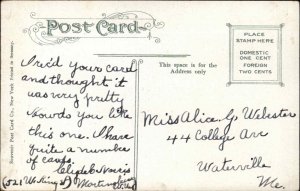 Post Card
PLACE
STAMP HERE
DOMESTIC
ONE CENT
FOREIGN
TWO CENTS
This space is for the
Address only
Souvenir Post Card Co., New York. Printed in Germany.
Rec'd your card
and thought it
was very pretty
How do you like
this one. I have
quite a number
of cards.
Clyde Norris
Miss Alice G. Webster
44 College Ave
Waterville
Me.